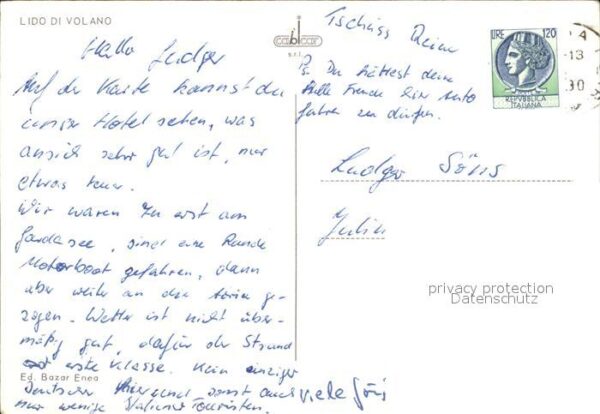 LIDO DI VOLANO
Hallo Ludger
Auf der Karte kannst du
unser Hotel sehen, was
ansich sehr gut ist, nur
etwas teuer.
Wir waren zu erst am
Gardasee, sind eine Runde
Motorboot gefahren, dann
aber weiter an die Adria ge-
zogen. Wetter ist nicht über-
mäßig gut, dafür der Strand
erste Klasse. Kein einziger
Deutscher hier und sonst auch
nur wenige Touristen.
viele Grüße
Tschüss Reiner
Ps. Du hättest deine
helle Freude hier Auto
fahren zu dürfen.
Ludger
Jülich
cabicar
s.r.l.
LIRE 120
REPVBBLICA
ITALIANA
A
-13
80
privacy protection
Datenschutz
Ed. Bazar Enea